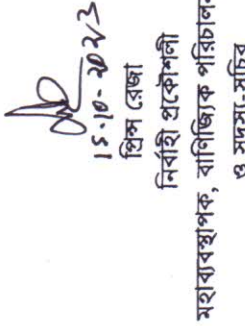 15-10-2023
প্রিন্স রেজা
নির্বাহী প্রকৌশলী
মহাব্যবস্থাপক, বাণিজ্যিক পরিচালন
ও সদস্য সচিব